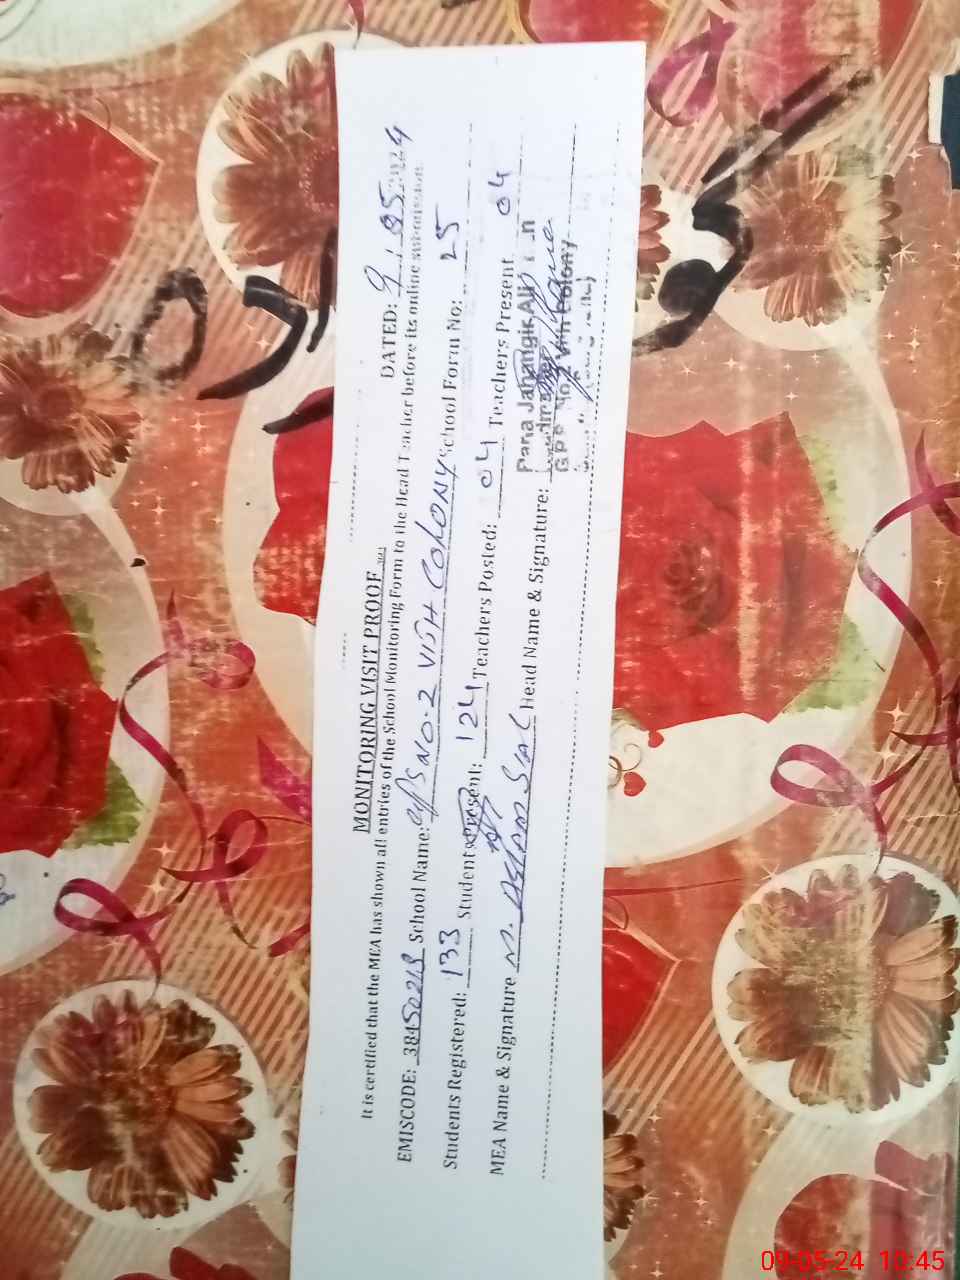 MONITORING VISIT PROOF
DATED: 9.05.2024
It is certified that the MEA has shown all entries of the School Monitoring Form to the Head Teacher before its online submission.
EMISCODE: 38450218 School Name: GPS NO.2 VISH COLONY School Form No: 25
Students Registered: 133 Students Present: 124 Teachers Posted: 04 Teachers Present 04
MEA Name & Signature M. ASLAM SIAL Head Name & Signature:
Rana Jahangir Ali
G.P.S No.2 Colony
09-05-24 10:45